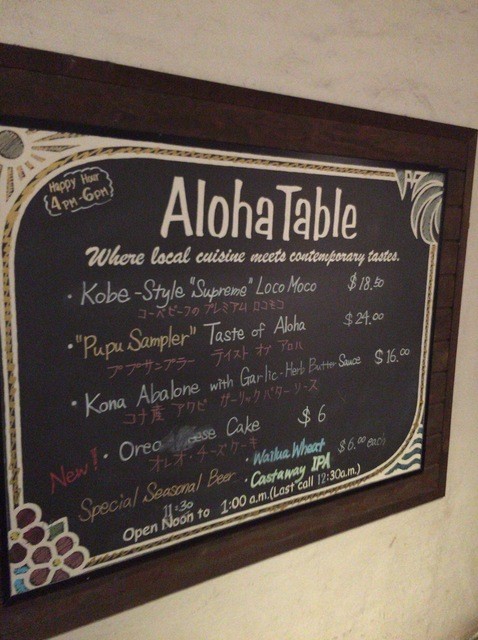 Happy Hour
4PM-6PM
Aloha Table
Where local cuisine meets contemporary tastes.
· Kobe-Style "Supreme" Loco Moco $18.50
コーベビーフの プレミアム ロコモコ
· "Pupu Sampler" Taste of Aloha $24.00
ププサンプラー テイスト オブ アロハ
· Kona Abalone with Garlic-Herb Butter Sauce $16.00
コナ産 アワビ ガーリックバターソース
New! · Oreo Cake $6
オレオ・チーズケーキ
Special Seasonal Beer · Wailua Wheat $6.00 each
· Castaway IPA
11:30
Open Noon to 1:00 a.m. (Last call 12:30a.m.)